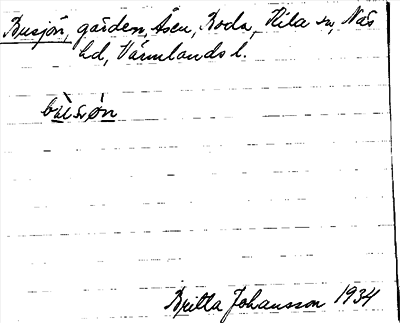 Busjön, gården, Åsen, Boda, Kila sn, Näs
hd, Värmlands l.
bùsȷøn
Britta Johansson 1934